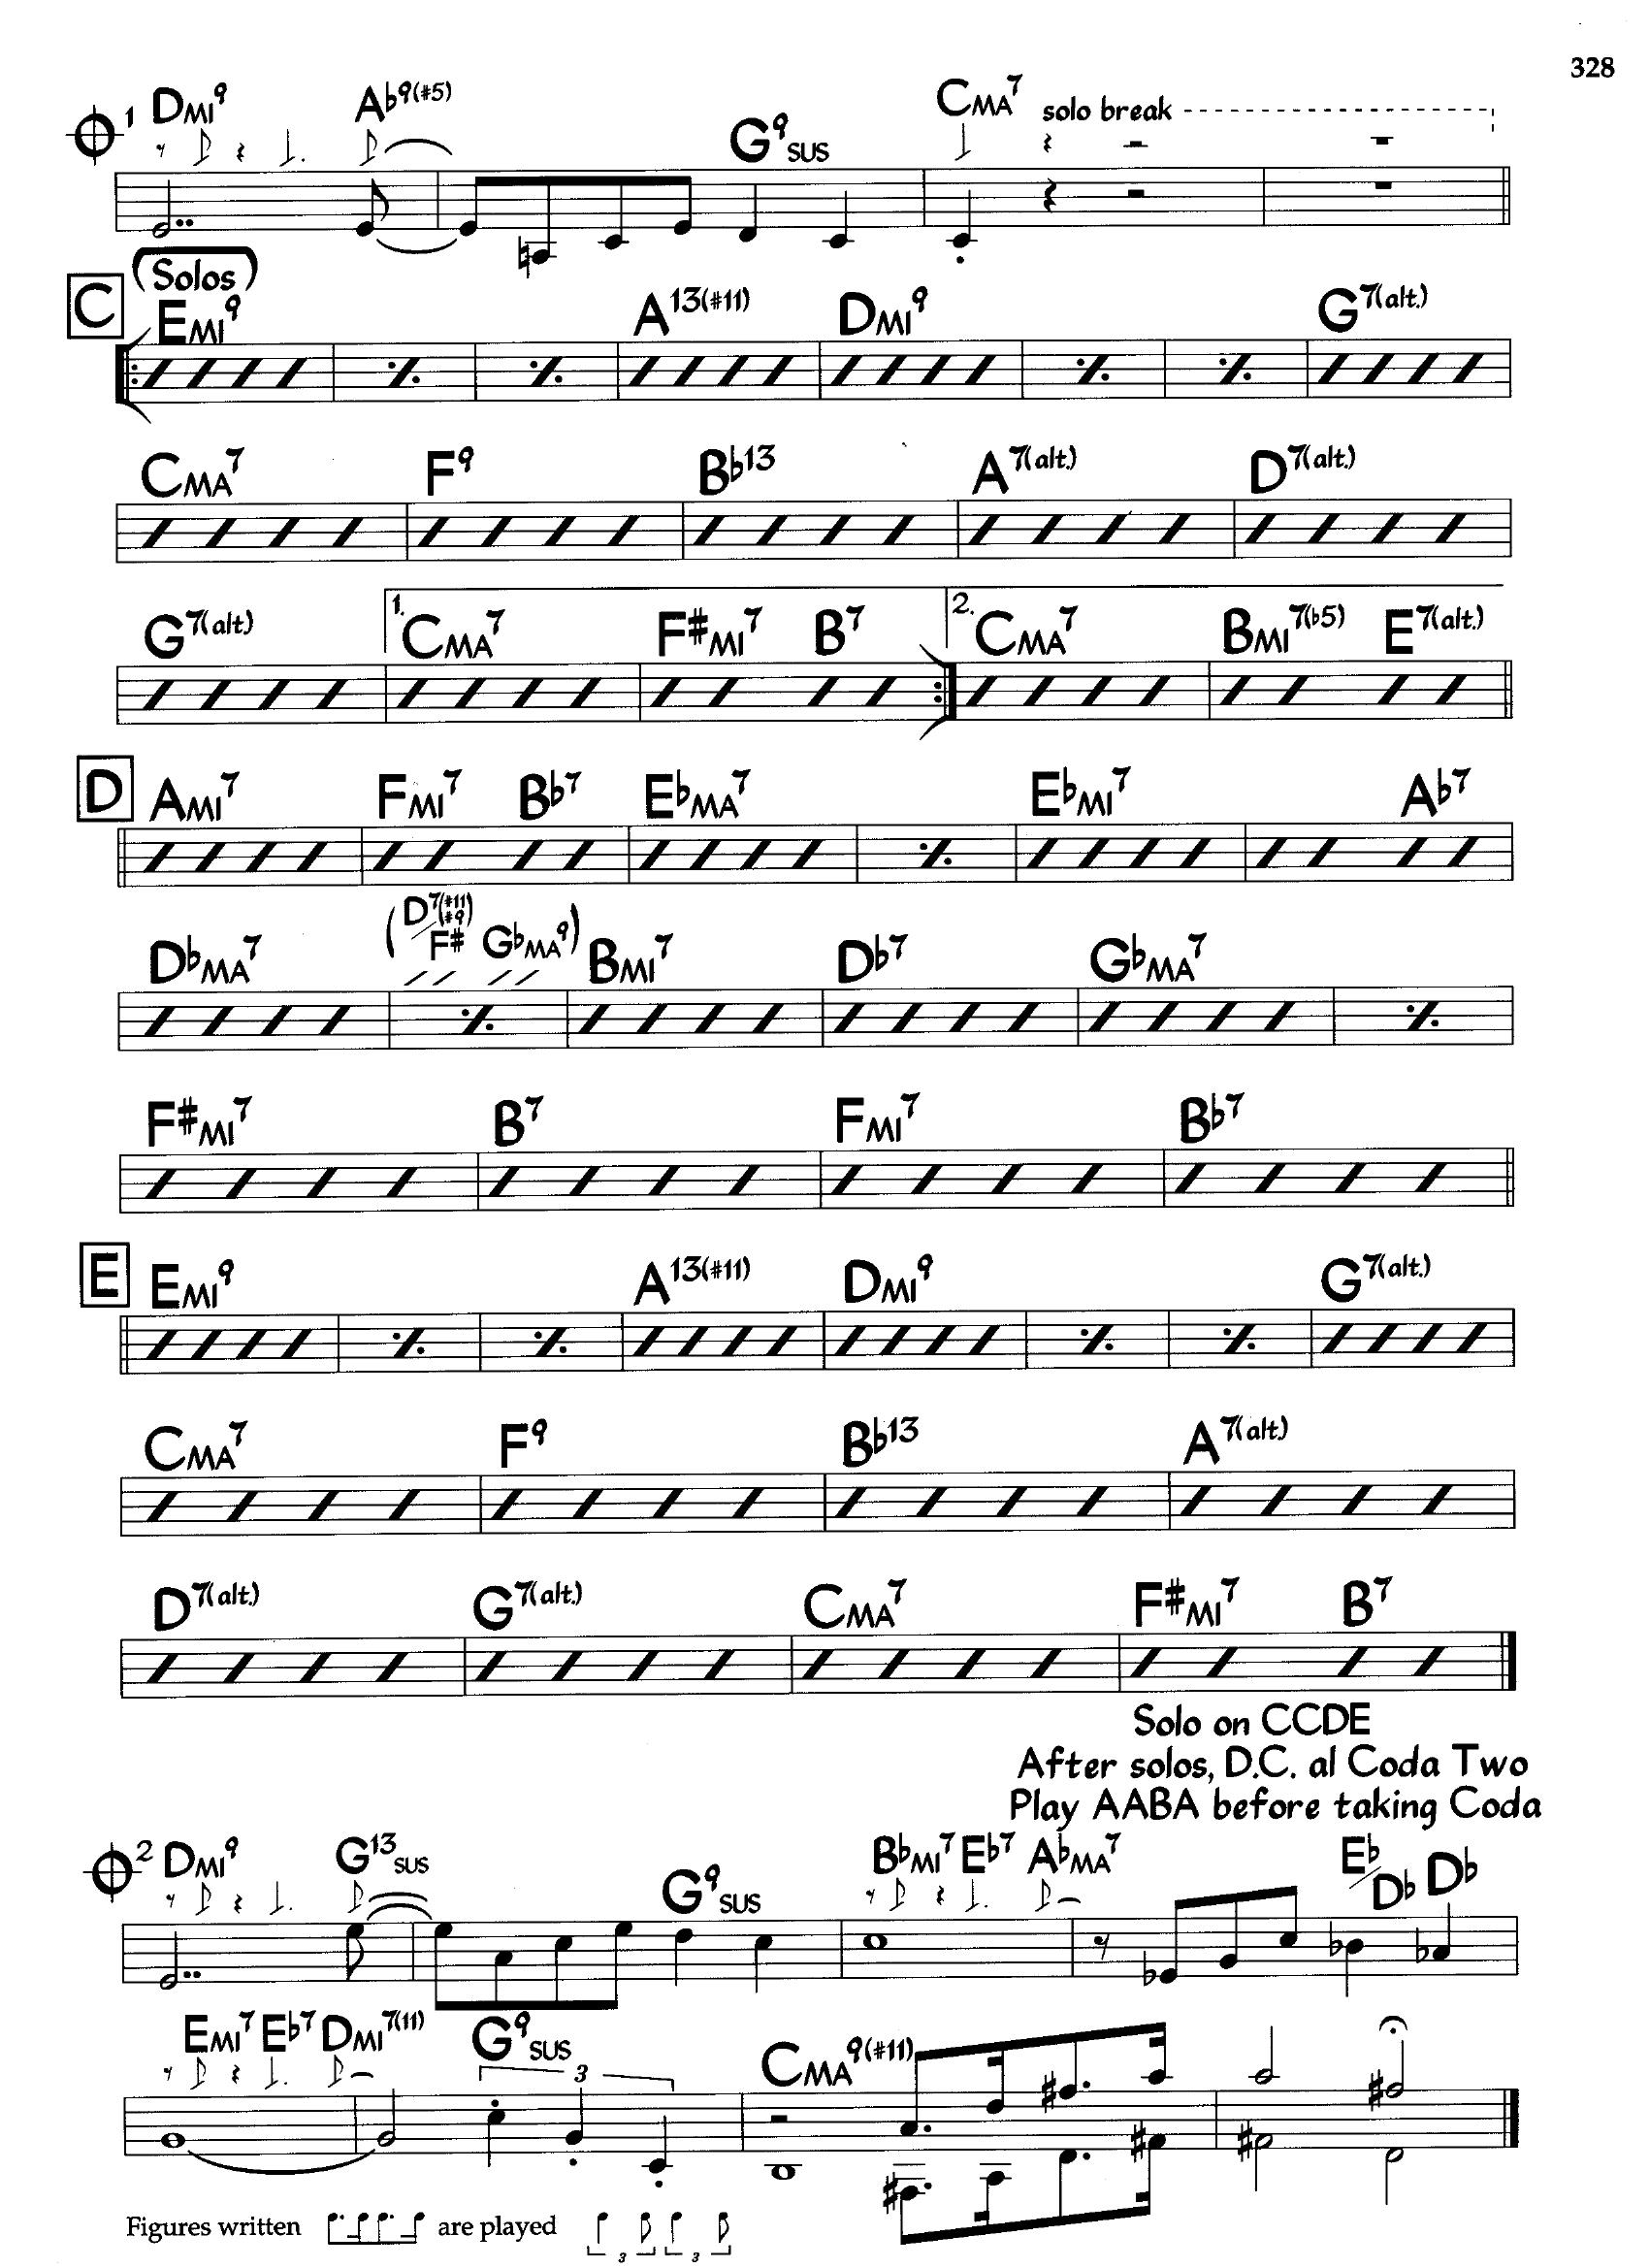 328
1 DMI9 Ab9(#5) G9SUS CMA7 solo break
(Solos)
C EMI9 A13(#11) DMI9 G7(alt.)
CMA7 F9 Bb13 A7(alt.) D7(alt.)
G7(alt.) 1. CMA7 F#MI7 B7 2. CMA7 BMI7(b5) E7(alt.)
D AMI7 FMI7 Bb7 EbMA7 EbMI7 Ab7
DbMA7 (D7(#11)(#9)/F# GbMA9) BMI7 Db7 GbMA7
F#MI7 B7 FMI7 Bb7
E EMI9 A13(#11) DMI9 G7(alt.)
CMA7 F9 Bb13 A7(alt.)
D7(alt.) G7(alt.) CMA7 F#MI7 B7
Solo on CCDE
After solos, D.C. al Coda Two
Play AABA before taking Coda
2 DMI9 G13SUS G9SUS BbMI7 Eb7 AbMA7 Eb/Db Db
EMI7 Eb7 DMI7(11) G9SUS 3 CMA9(#11)
Figures written are played 3 3